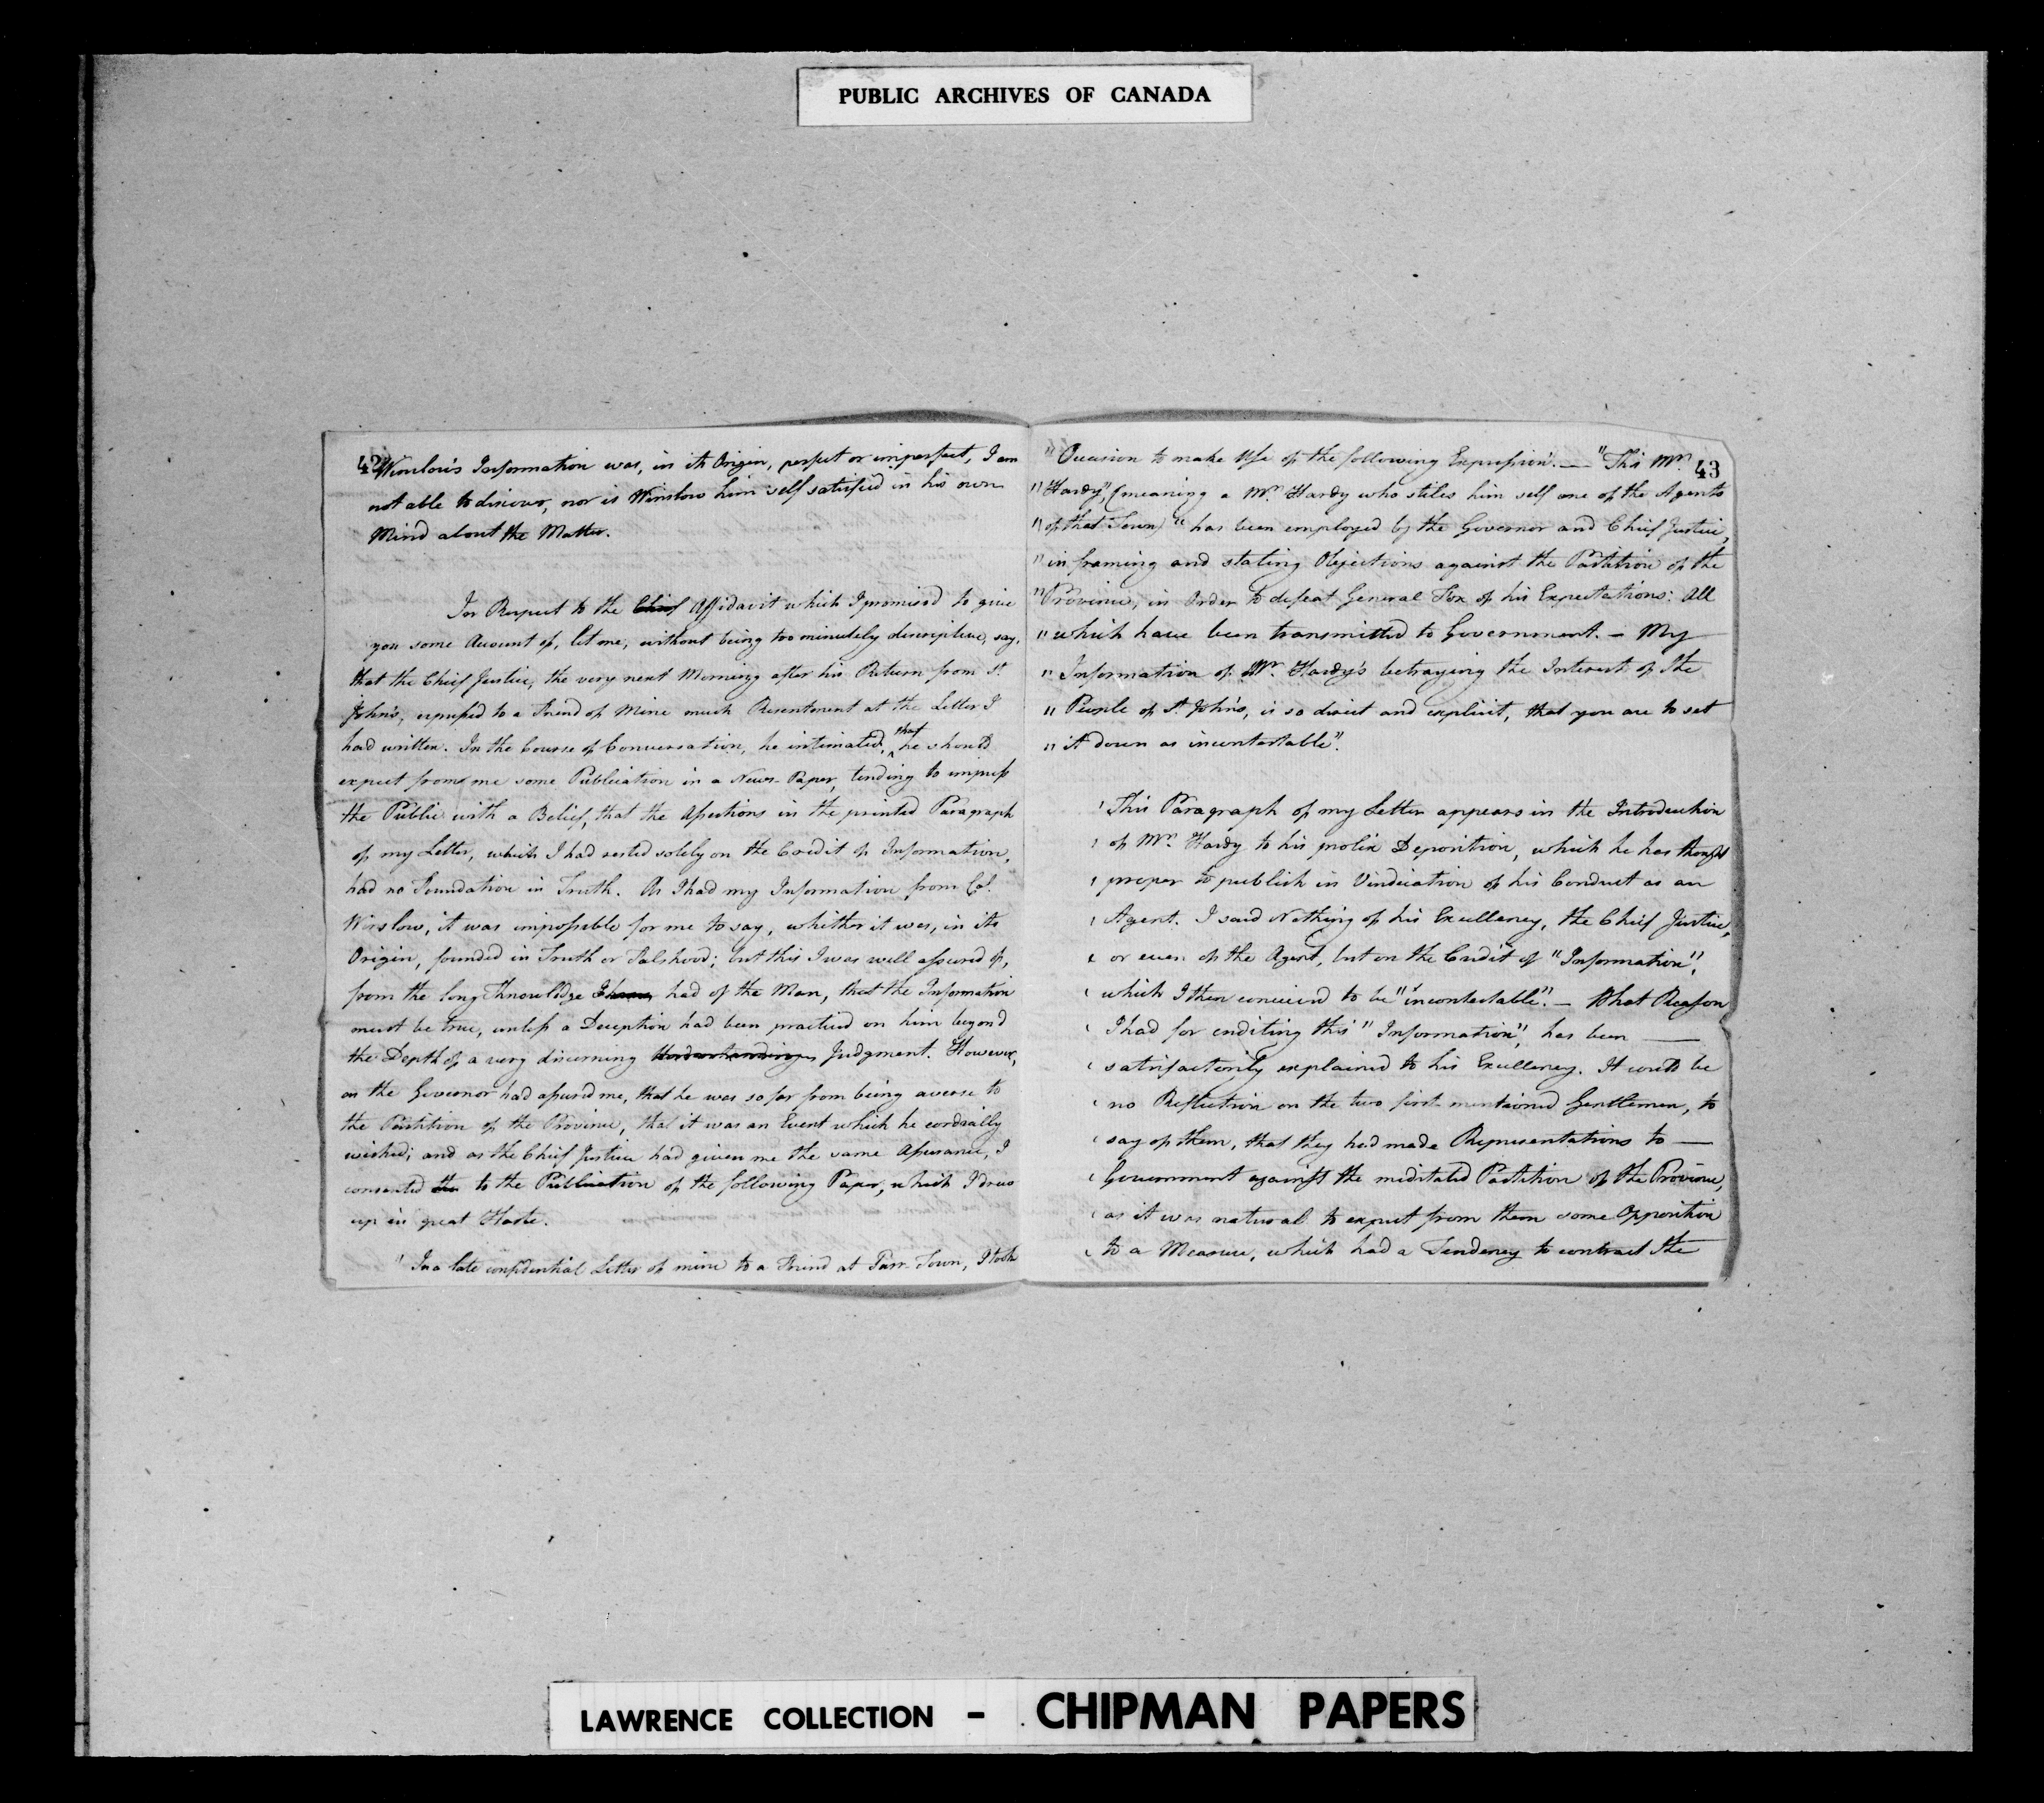 PUBLIC ARCHIVES OF CANADA
42
Winslow's Information was, in its Origin, perfect or imperfect, I am
not able to discover, nor is Winslow him self satisfied in his own
Mind about the Matter.
In Respect to the Chief Affidavit which I promised to give
you some Account of, let me, without being too minutely discriptive, say,
that the Chief Justice, the very next Morning after his Return from St.
John's, expressed to a Friend of Mine much Resentment at the Letter I
had written. In the Course of Conversation, he intimated, that he should
expect from me some Publication in a News-Paper, tending to impress
the Public with a Belief, that the Assertions in the printed Paragraph
of my Letter, which I had rested solely on the Credit of Information,
had no Foundation in Truth. As I had my Information from Col.
Winslow, it was impossible for me to say, whither it was, in its
Origin, founded in Truth or Falshood; but this I was well assured of,
from the long Knowledge I have had of the Man, that the Information
must be true, unless a Deception had been practiced on him beyond
the Depth of a very discerning Understanding Judgment. However,
as the Governor had assured me, that he was so far from being averse to
the Partition of the Province, that it was an Event which he cordially
wished; and as the Chief Justice had given me the same Assurance, I
consented the to the Publication of the following Paper, which I drew
up in great Haste.
' In a late confidential Letter of mine to a Friend at Parr-Town, I took
43
" Occasion to make Use of the following Expression. — "This Mr.
" Hardy", (meaning a Mr. Hardy who stiles him self one of the Agents
" of that Town) "has been employed by the Governor and Chief Justice,
" in framing and stating Objections against the Partition of the
" Province, in Order to defeat General Fox of his Expectations: All
" which have been transmitted to Government. — My
" Information of Mr. Hardy's betraying the Interest of the
" People of St. John's, is so direct and explicit, that you are to set
" it down as incontestable".
' This Paragraph of my Letter appears in the Introduction
' of Mr. Hardy to his prolix Deposition, which he has thought
' proper to publish in Vindication of his Conduct as an
' Agent. I said Nothing of his Excellency, the Chief Justice,
' or even of the Agent, but on the Credit of "Information",
' which I then conceived to be "incontestable". — What Reason
' I had for crediting this "Information", has been —
' satisfactorily explained to his Excellency. It could be
' no Reflection on the two first mentioned Gentlemen, to
' say of them, that they had made Representations to —
' Government against the meditated Partition of the Province,
' as it was natural to expect from them some Opposition
' to a Measure, which had a Tendency to contract the
LAWRENCE COLLECTION - CHIPMAN PAPERS